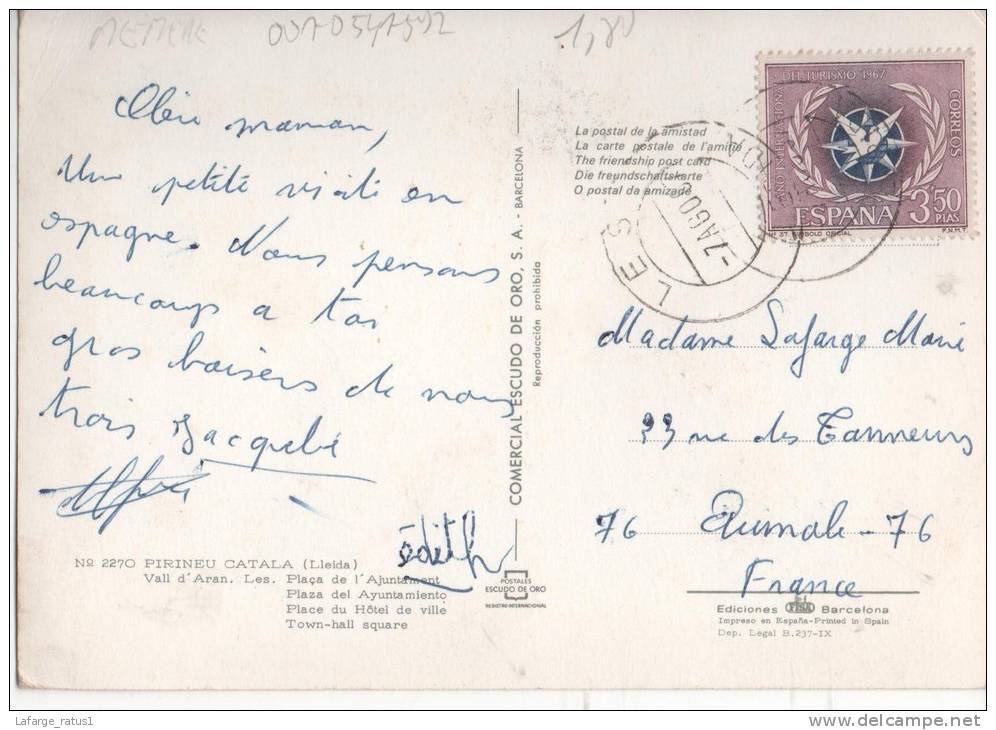 MEMERE
1,80
Chère maman,
Une petite visite en
espagne. Nous pensons
beaucoup a toi
gros baisers de nous
trois Jacqueline
édith
Nº 2270 PIRINEU CATALA (Lleida)
Vall d'Aran. Les. Plaça de l'Ajuntament
Plaza del Ayuntamiento
Place du Hôtel de ville
Town-hall square
COMERCIAL ESCUDO DE ORO, S. A. - BARCELONA
Reproducción prohibida
POSTALES
ESCUDO DE ORO
REGISTRO INTERNACIONAL
La postal de la amistad
La carte postale de l'amitié
The friendship post card
Die freundschaftskarte
O postal da amizade
AÑO INTERNACIONAL DEL TURISMO 1967
CORREOS
3'50
PTAS
ESPAÑA
Nº 37. SIMBOLO OFICIAL
F.N.M.T
LES
-7 AGO
Madame Lafarge Marie
33 rue des Tanneurs
76 Aumale-76
France
Ediciones FISA Barcelona
Impreso en España-Printed in Spain
Dep. Legal B.237-IX
Lafarge_ratus1
delcampe.net